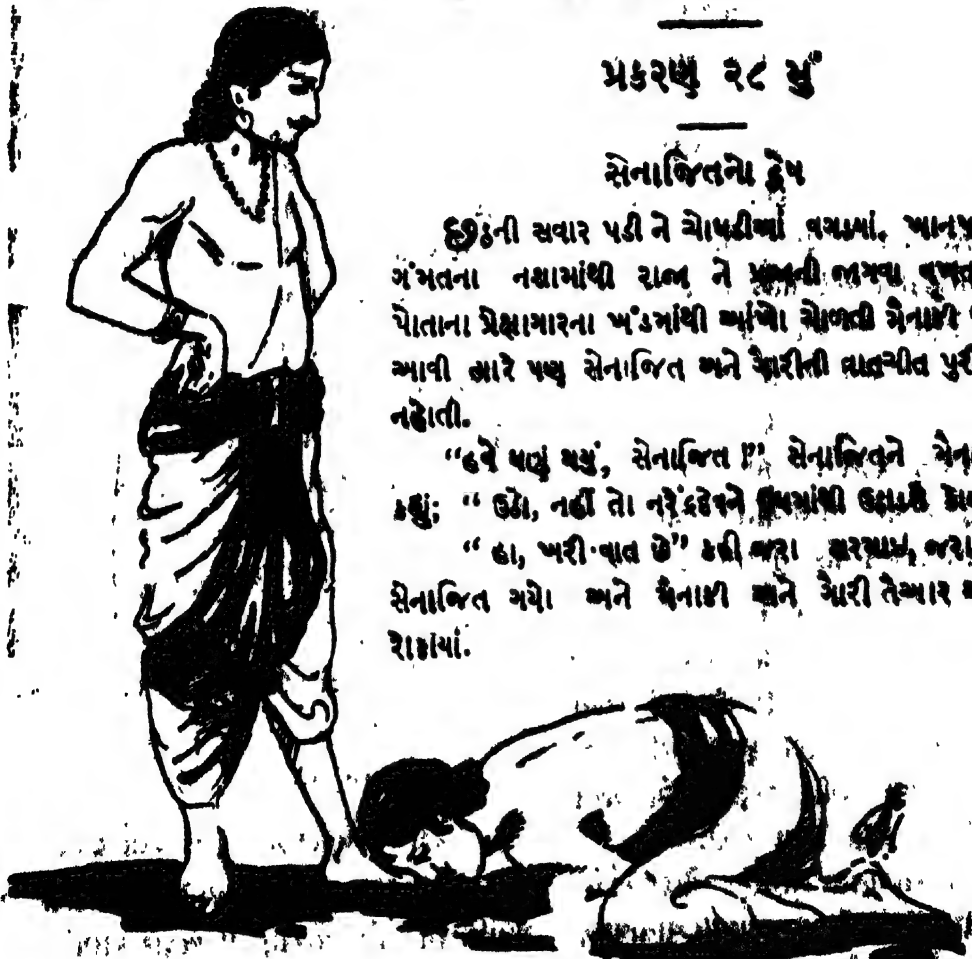 પ્રકરણ ૨૮ મું
સેનાજિતનો દ્વેષ
છઠની સવાર પડી ને ચોઘડીઆં વગડ્યાં. ખાનપ
ગંમતના નશામાંથી રાજા ને જાગવા વખત
પોતાના પ્રેક્ષાગારના ખંડમાંથી આંખો ચોળતી મૈનાકી
આવી ત્યારે પણ સેનાજિત અને ગૌરીની વાતચીત પુરી
નહોતી.
“હવે ઘણું થયું, સેનાજિત !” સેનાજિતને મૈના
કહ્યું; “ ઉઠો, નહીં તો નરેંદ્રદેવને
“ હા, ખરી વાત છે” કહી જરા શરમાઇ, જરા
સેનાજિત ગયો અને મૈનાકી અને ગૌરી તૈઆર
રોકાયાં.